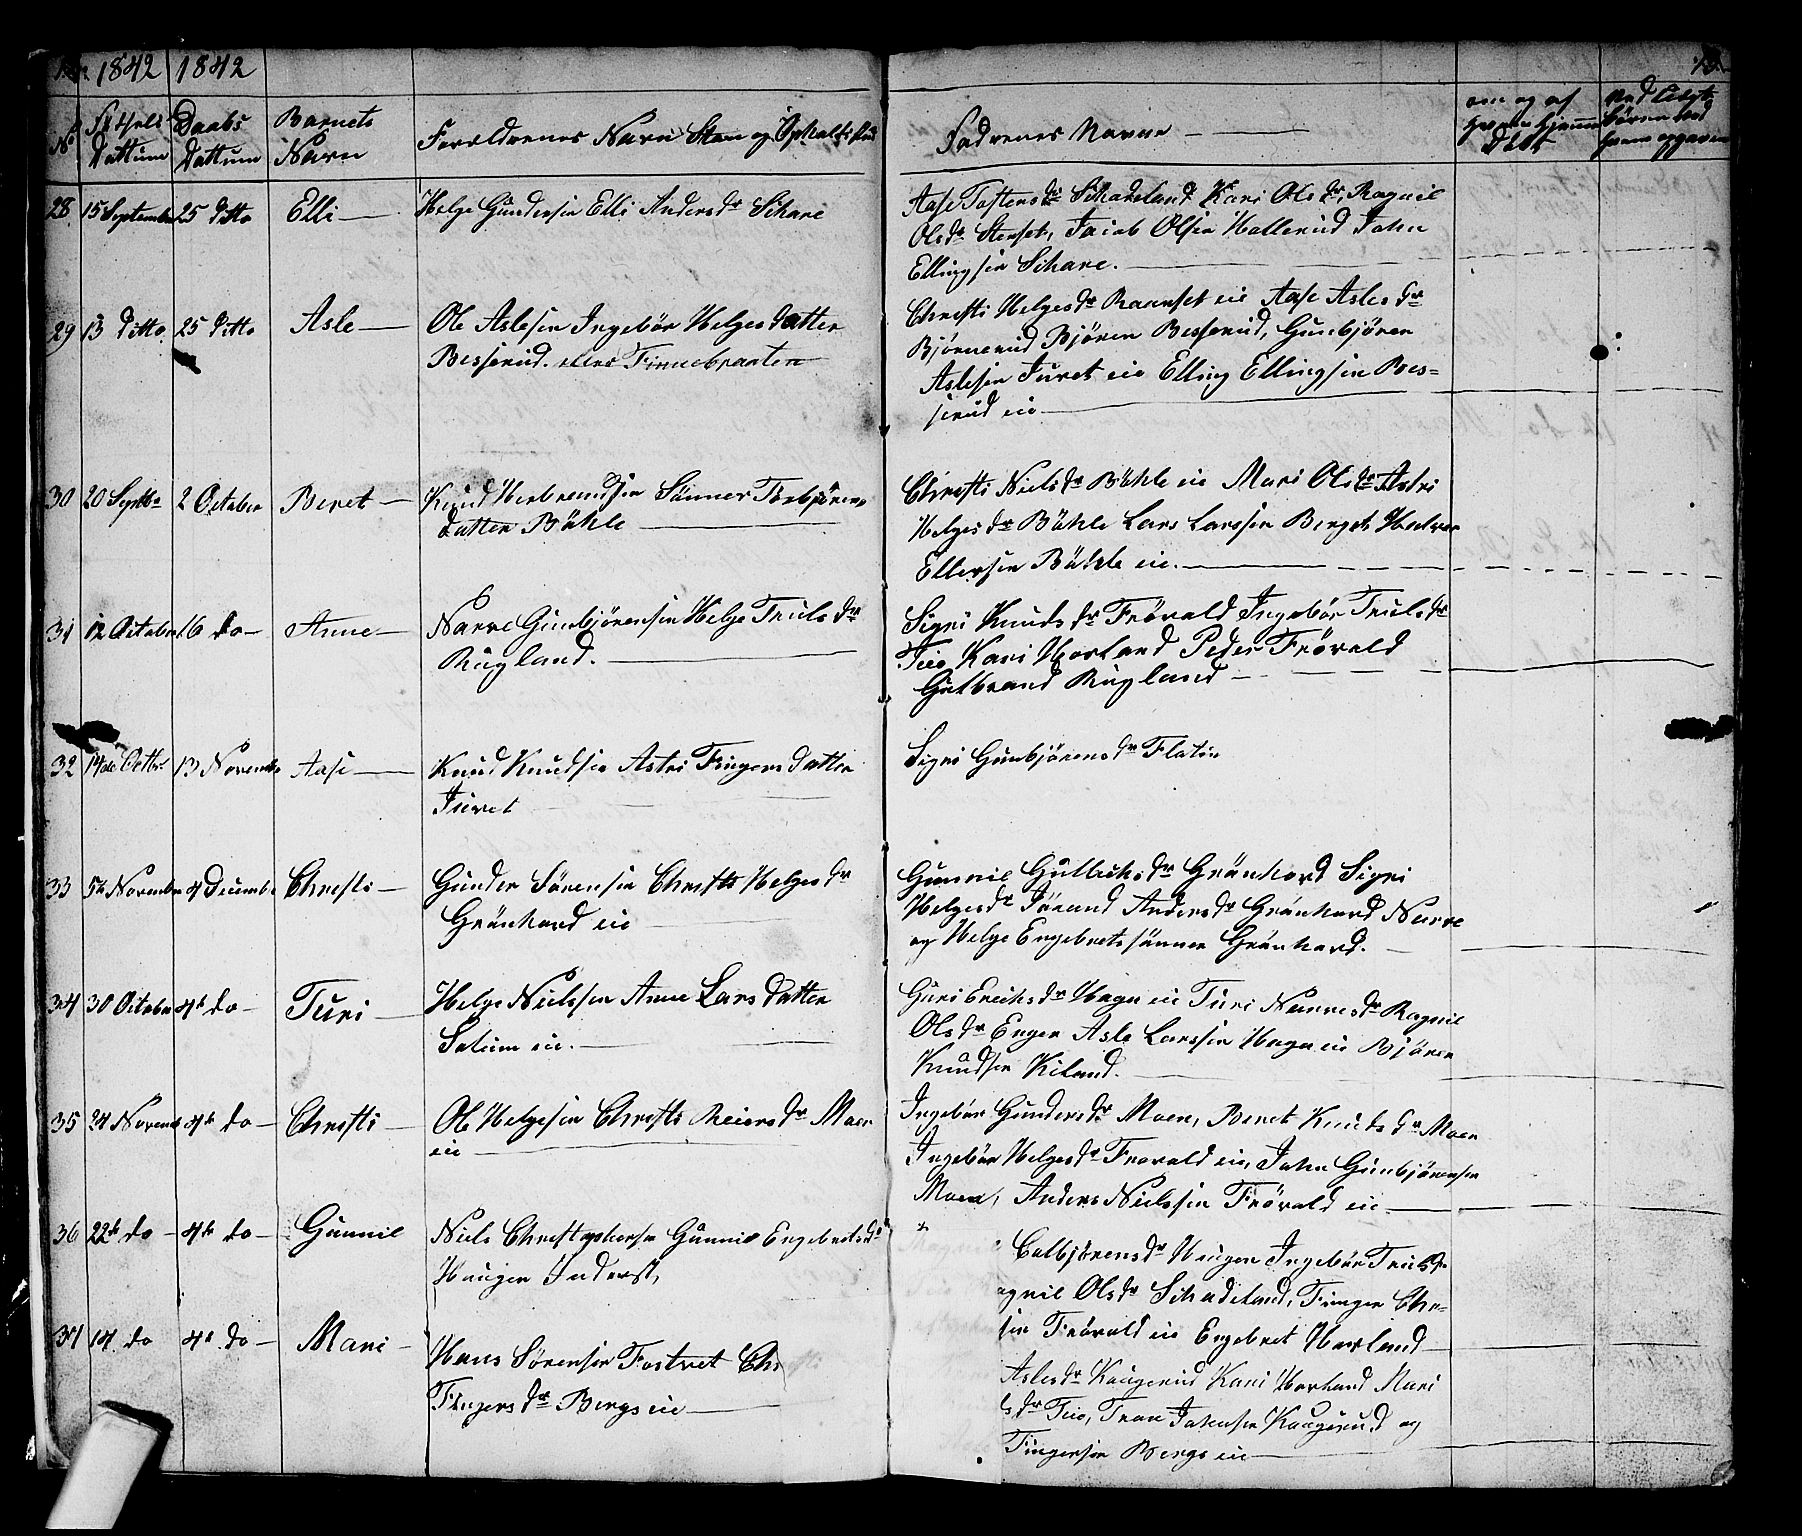 1842 1842
No Födsels Dattum Daabs Dattum Barnets Navn Foreldrenes Navn Stan og Opholds Sted Fadrenes Navne
28 15 September 25 Ditto Elli Helge Gundersen Elli Andersdr Skare
Aase Tostensdr Skadeland Kari Olsdr, Ragnil
Olsdr Stenset, Jacob Olsen Hallerud John
Ellingsen Skare.
29 13 Ditto 25 Ditto Asle Ole Aslesen Ingebör Helgesdatter
Besserud. Finnebraaten
Christi Helgesdr Raanset eie Aase Aslesdr
Björnerud Björen Besserud, Gunbjören
Aslesen Juret eie Elling Ellingsen Bes=
serud eie
30 20 Septbr 2 October Beret Knud Herbrandsen Sönnev Torbjörens
datter Bühle
Christi Nielsdr Bühle eie Mari Olsdr Astri
Helgesdr Bühle Lars Larssen Berget Halvor
Ellevsen Bühle eie.
31 12 October 16 do Anne Narve Gunbjörensen Helge Trulsdr
Rugland.
Sigri Knudsdr Frövold Ingebör Trulsdr
Teie Kari Horland Peder Frövold
Gulbrand Rugland
32 14de Octbr 13 November Aase Knud Knudsen Astri Fingersdatter
Juret
Sigri Gunbjörensdr Flatin
33 5te November 4 December Christi Gunder Sörensen Christi Helgesdr
Grönhord eie
Gunnil Gulliksdr Grönhord Sigri
Helgesdr Jörand Andersdr Grönhord Narve
og Helge Engebretssönner Grönhord.
34 30 October 4de do Turi Helge Nielssen Anne Larsdatter
Solum eie.
Guri Eriksdr Haga eie Turi Narvesdr Ragnil
Olsdr Enger Asle Larssen Haga eie Björen
Knudsen Kiland.
35 24 Novemb 4de do Christi Ole Helgesen Christi Reiersdr Moen
eie
Ingebör Gundersdr Moen, Beret Knudsdr Moen
Ingebör Helgesdr Frövold eie, John Gunbjörensen
Moen, Anders Nielssen Frövold eie
36 22de do 4de do Gunnil Niels Christophersen Gunnil Engebretsdr
Haugen Inderst,
Colbjörensdr Haugen Ingebör Trulsdr
agnil Olsdr Skadeland, Finger Chr=
sen Frövold eie Engebret Horland
37 14 do 4de do Mari Hans Sörensen Fostvet Chr
Fingersdr Bergs eie
Aslesdr Kaugerud Kari Horland Mari
sdr Teie, Tron Johnsen Kaugerud og
Fingersen Bergs eie